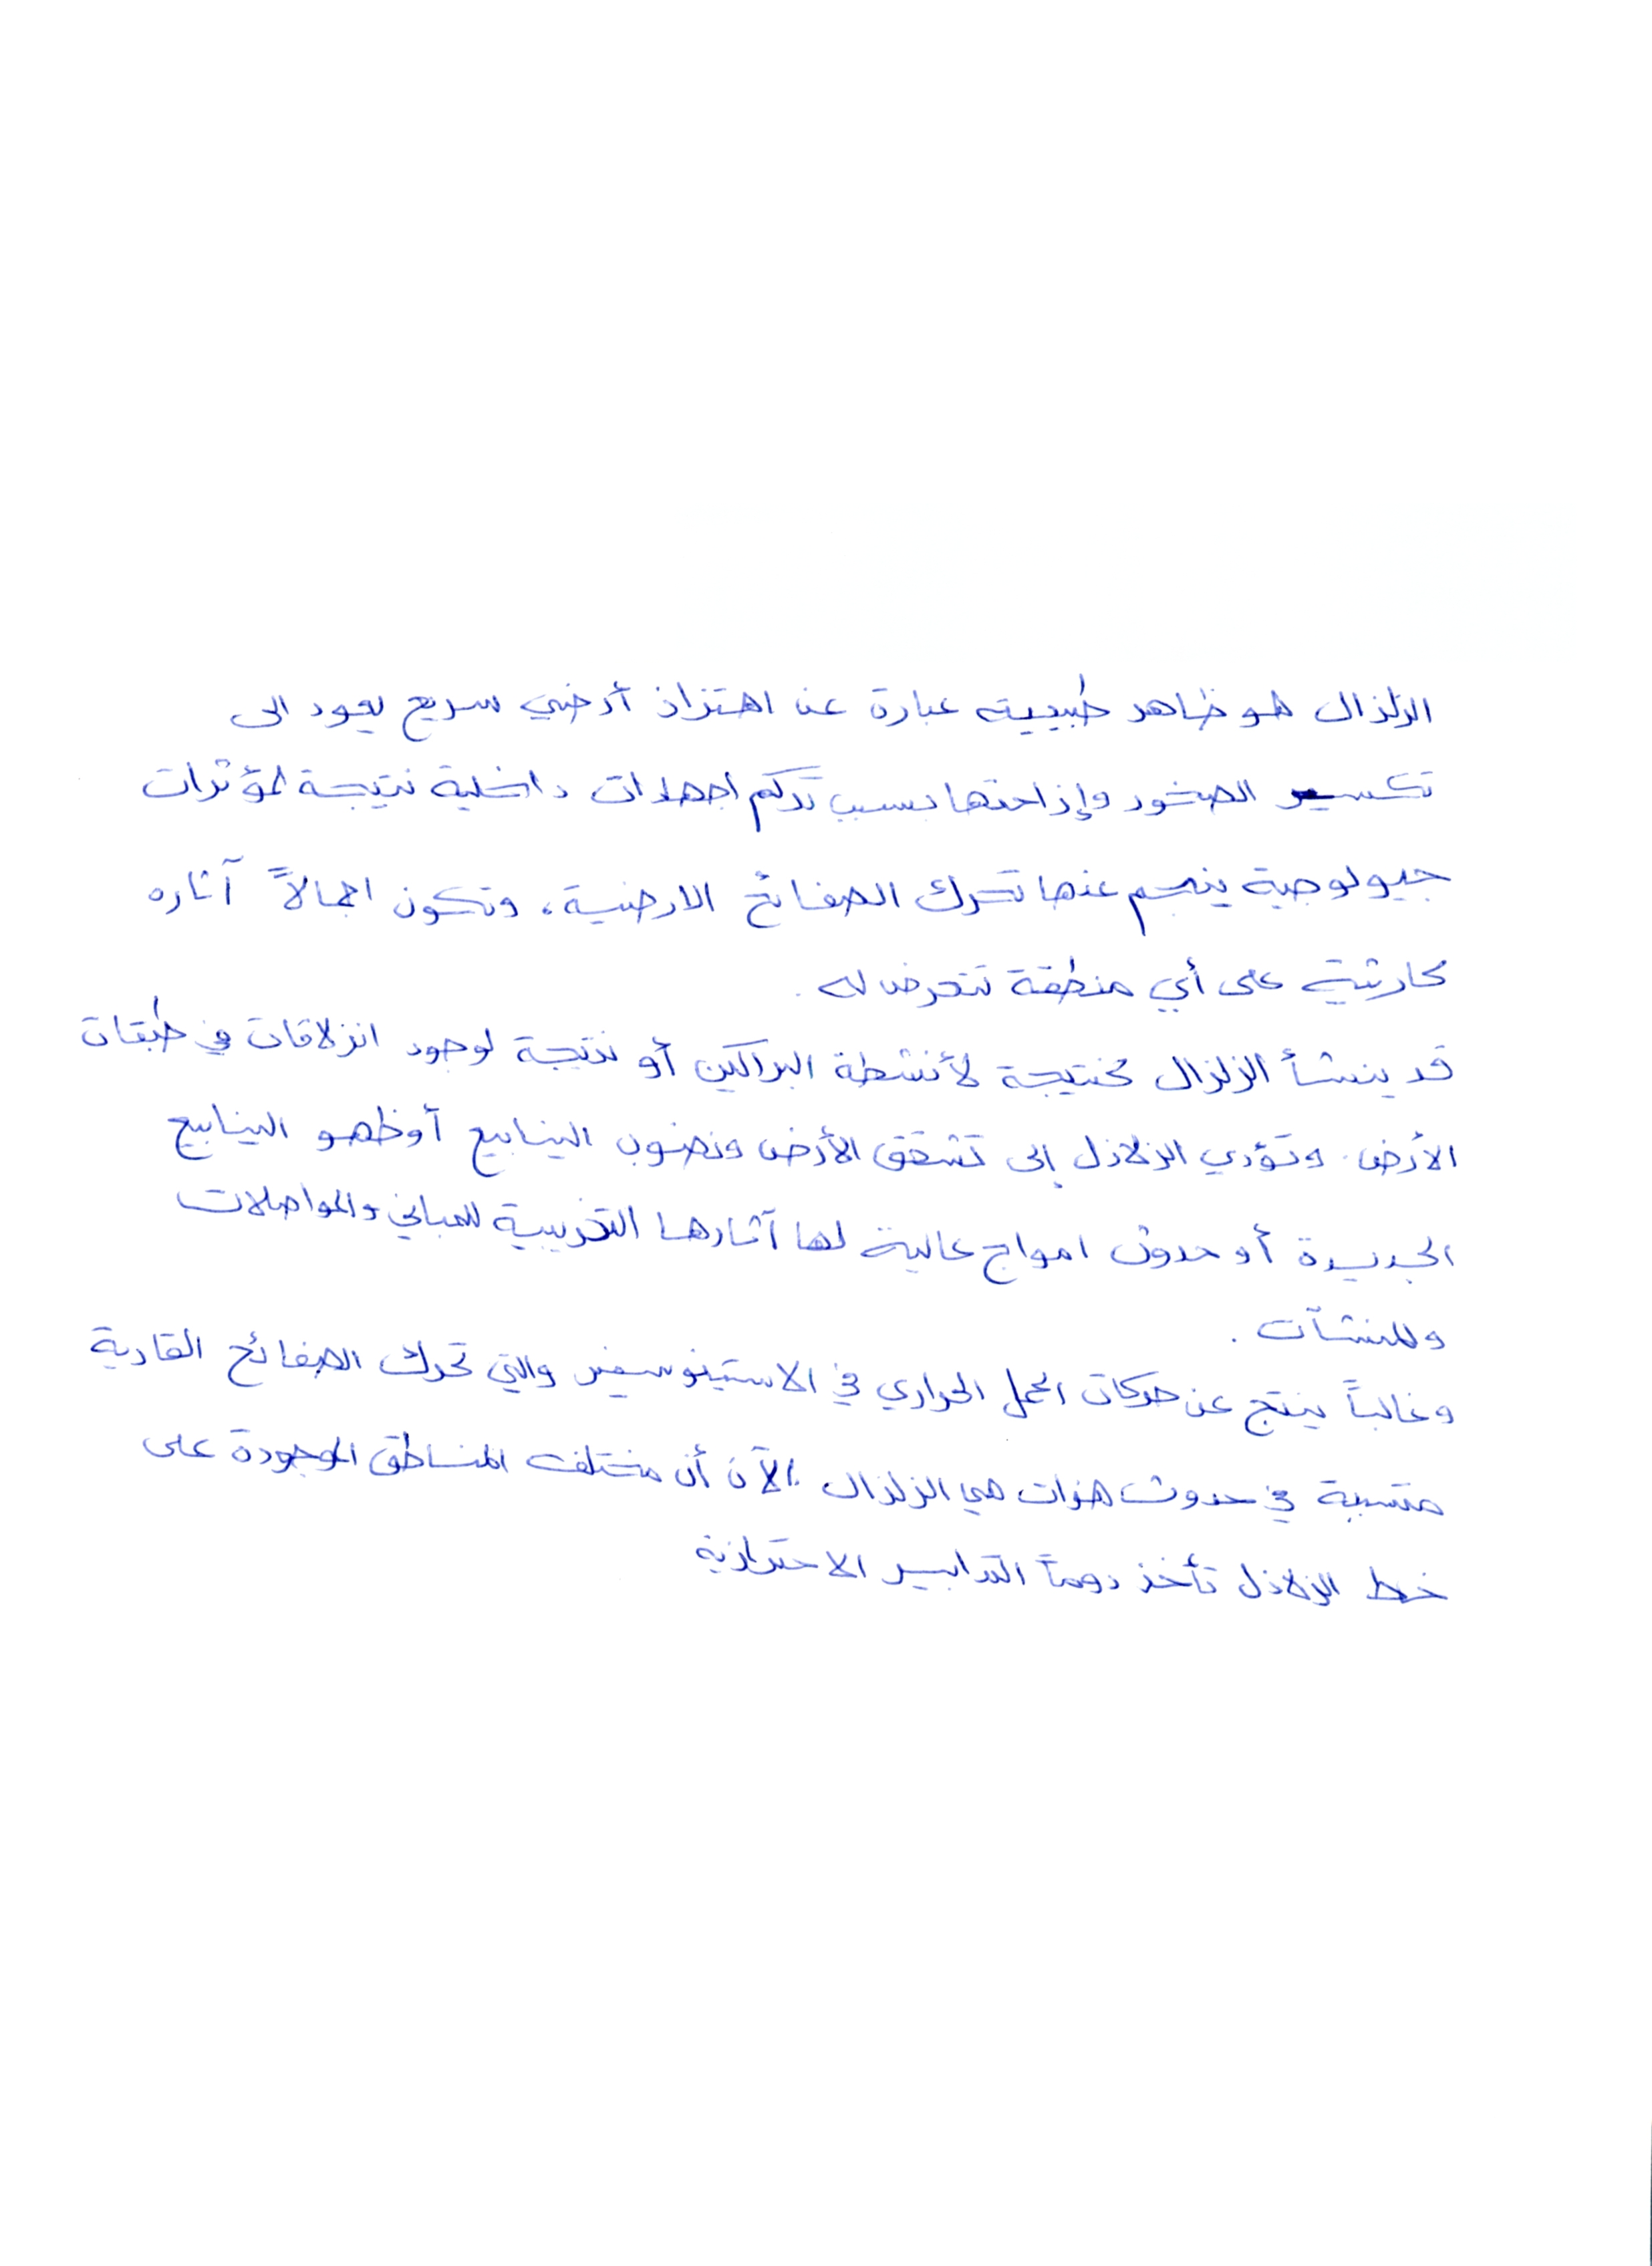 الزلزال هو ظاهر طبيعية عبارة عن اهتزاز أرضي سريع يعود الى
تكسير الصخور وإزاحتها بسبب تركم اجهادات داخلية نتيجة لمؤثرات
جيولوجية ينجم عنها تحرك الصفائح الارضية، وتكون اجمالاً آثاره
كارثية على أي منطقة تتعرض له.
قد ينشأ الزلزال كنتيجة لأنشطة البراكين أو نتيجة لوجود انزلاقات في طبقات
الأرض. وتؤدي الزلازل إلى تشقق الأرض ونضوب الينابيع أو ظهو الينابيع
الجديدة أو حدوث امواج عالية لها آثارها التخريبية للمباني والمواصلات
وللمنشآت.
وغالباً ينتج عن حركات الحمل الحراري في الاستينوسفير والتي تحرك الصفائح القارية
متسببة في حدوث هزات هي الزلزال الآن أن مختلف المناطق الموجودة على
خط الزلازل تأخذ دوماً التدابير الاحترازية